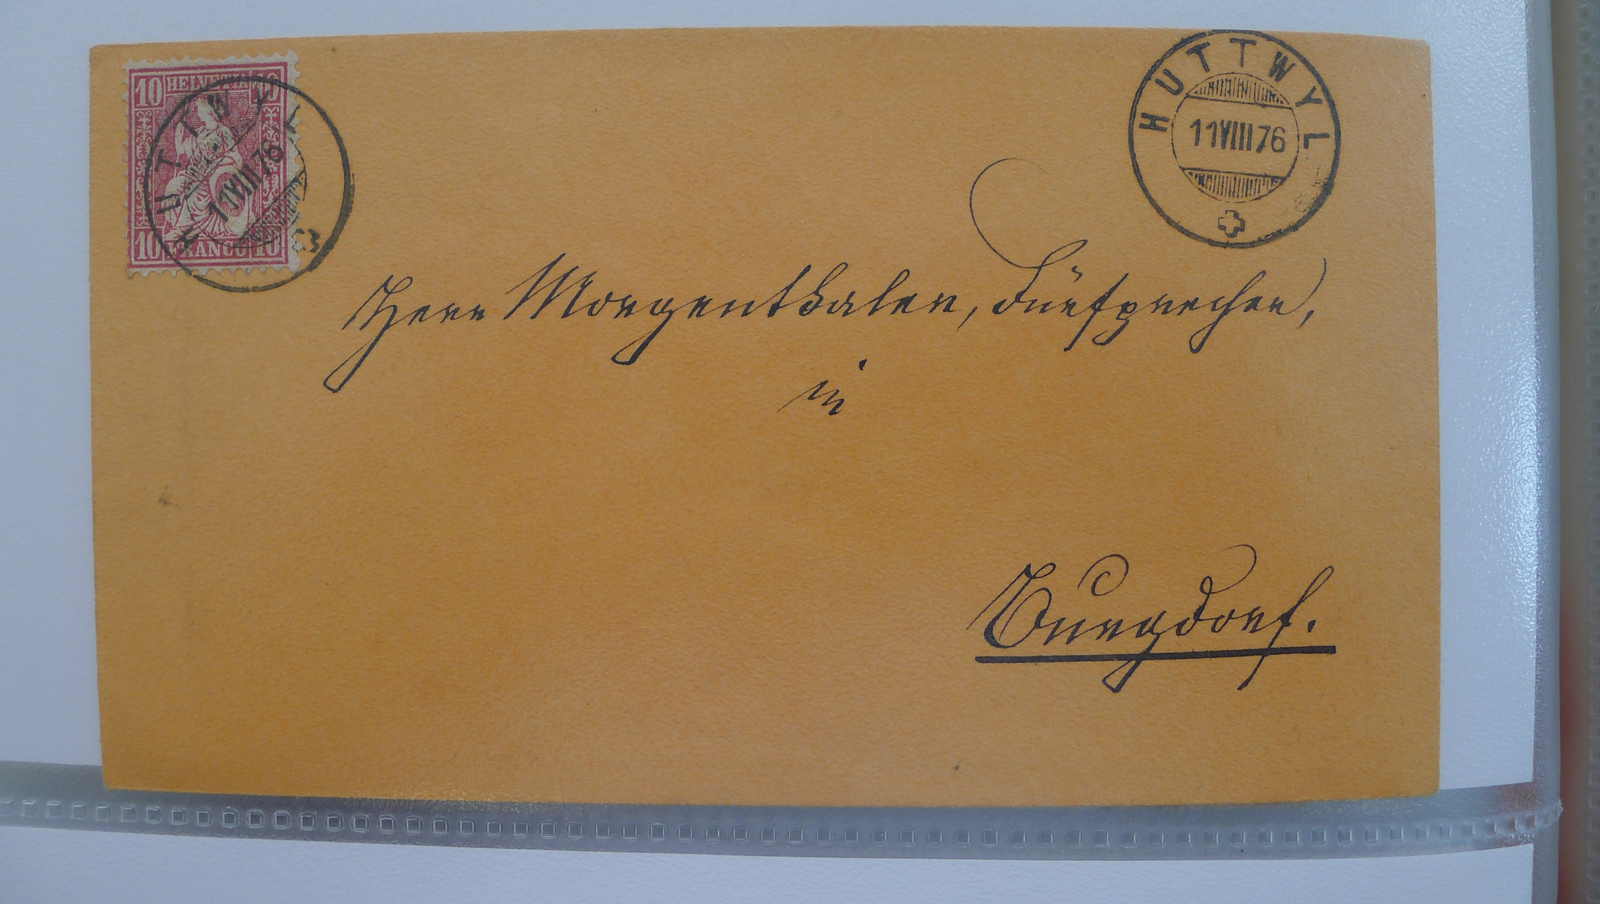 10 HELVETIA 10
10 FRANCO 10
HUTTWYL
11 VIII 76
HUTTWYL
11 VIII 76
Herrn Morgenthaler, Fürsprecher,
in
Burgdorf.